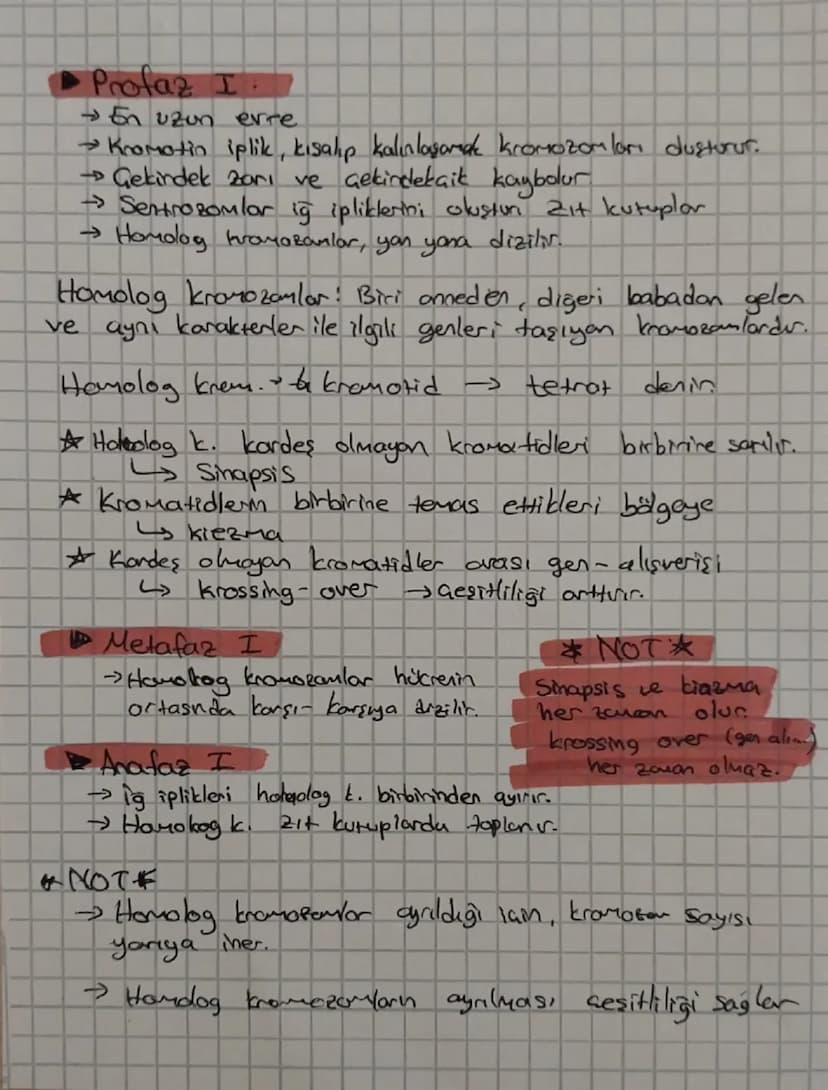 ▶ Profaz I.
→ En uzun evre
→ Kromotin iplik, kısalıp kalınlaşarak kromozomları oluşturur.
→ Çekirdek zarı ve çekirdekçik kaybolur
→ Sentrozomlar iğ ipliklerini oluştur zıt kutuplar
→ Homolog kromozonlar, yan yana dizilir.
Homolog kromozomlar: Biri anneden, diğeri babadan gelen
ve aynı karakterler ile ilgili genleri taşıyan kromozomlardır.
Homolog krom. → 4 kromotid → tetrat denir
☆ Homolog k. kardeş olmayan kromatidleri birbirine sarılır.
↳ Sinapsis
☆ Kromatidlerin birbirine temas ettikleri bölgeye
↳ kiezma
☆ Kardeş olmayan kromatidler arası gen-alışverişi
↳ krossing-over → çeşitliliği arttırır.
▶ Metafaz I
→ Homolog kromozomlar hücrenin
ortasında karşı-karşıya dizilir.
* NOT *
Sinapsis ve kiazma
her zaman olur.
krossing over (gen alım.)
her zaman olmaz.
▶ Anafaz I
→ iğ iplikleri homolog k. birbirinden ayırır.
→ Homolog k. zıt kutuplarda toplanır.
* NOT *
→ Homolog kromozomlar ayrıldığı için, kromozom sayısı
yarıya iner.
→ Homolog kromozomların ayrılması çeşitliliği sağlar